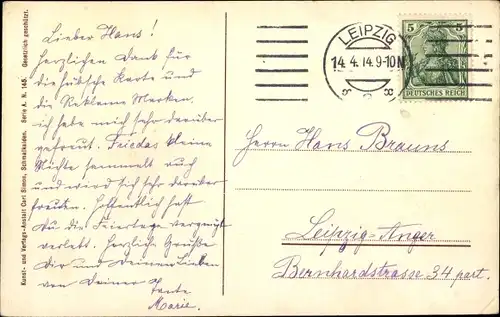 Lieber Hans!
Herzlichen Dank für
die hübsche Karte und
die Reklame Marken.
ich habe mich sehr darüber
gefreut. Friedas kleine
Nichte sammelt auch
und wird sich sehr darüber
freuen. Hoffentlich hast
du die Feiertage vergnügt
verlebt. Herzliche Grüße
Dir und Deinen Lieben
von Deiner Tante
Marie.
Kunst- und Verlags-Anstalt Carl Simon, Schmalkalden. Serie A. N. 145. Gesetzlich geschützt.
LEIPZIG
14.4.14.9-10N
8 8
5 5
DEUTSCHES REICH
Herrn Hans Brauns
Leipzig-Anger
Bernhardstrasse 34 part.